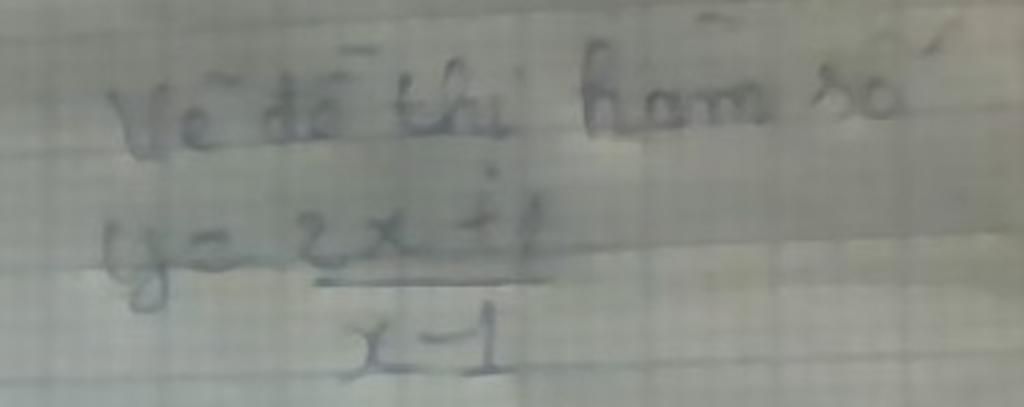 Vẽ đồ thị hàm số
y = \frac{2x+1}{x-1}